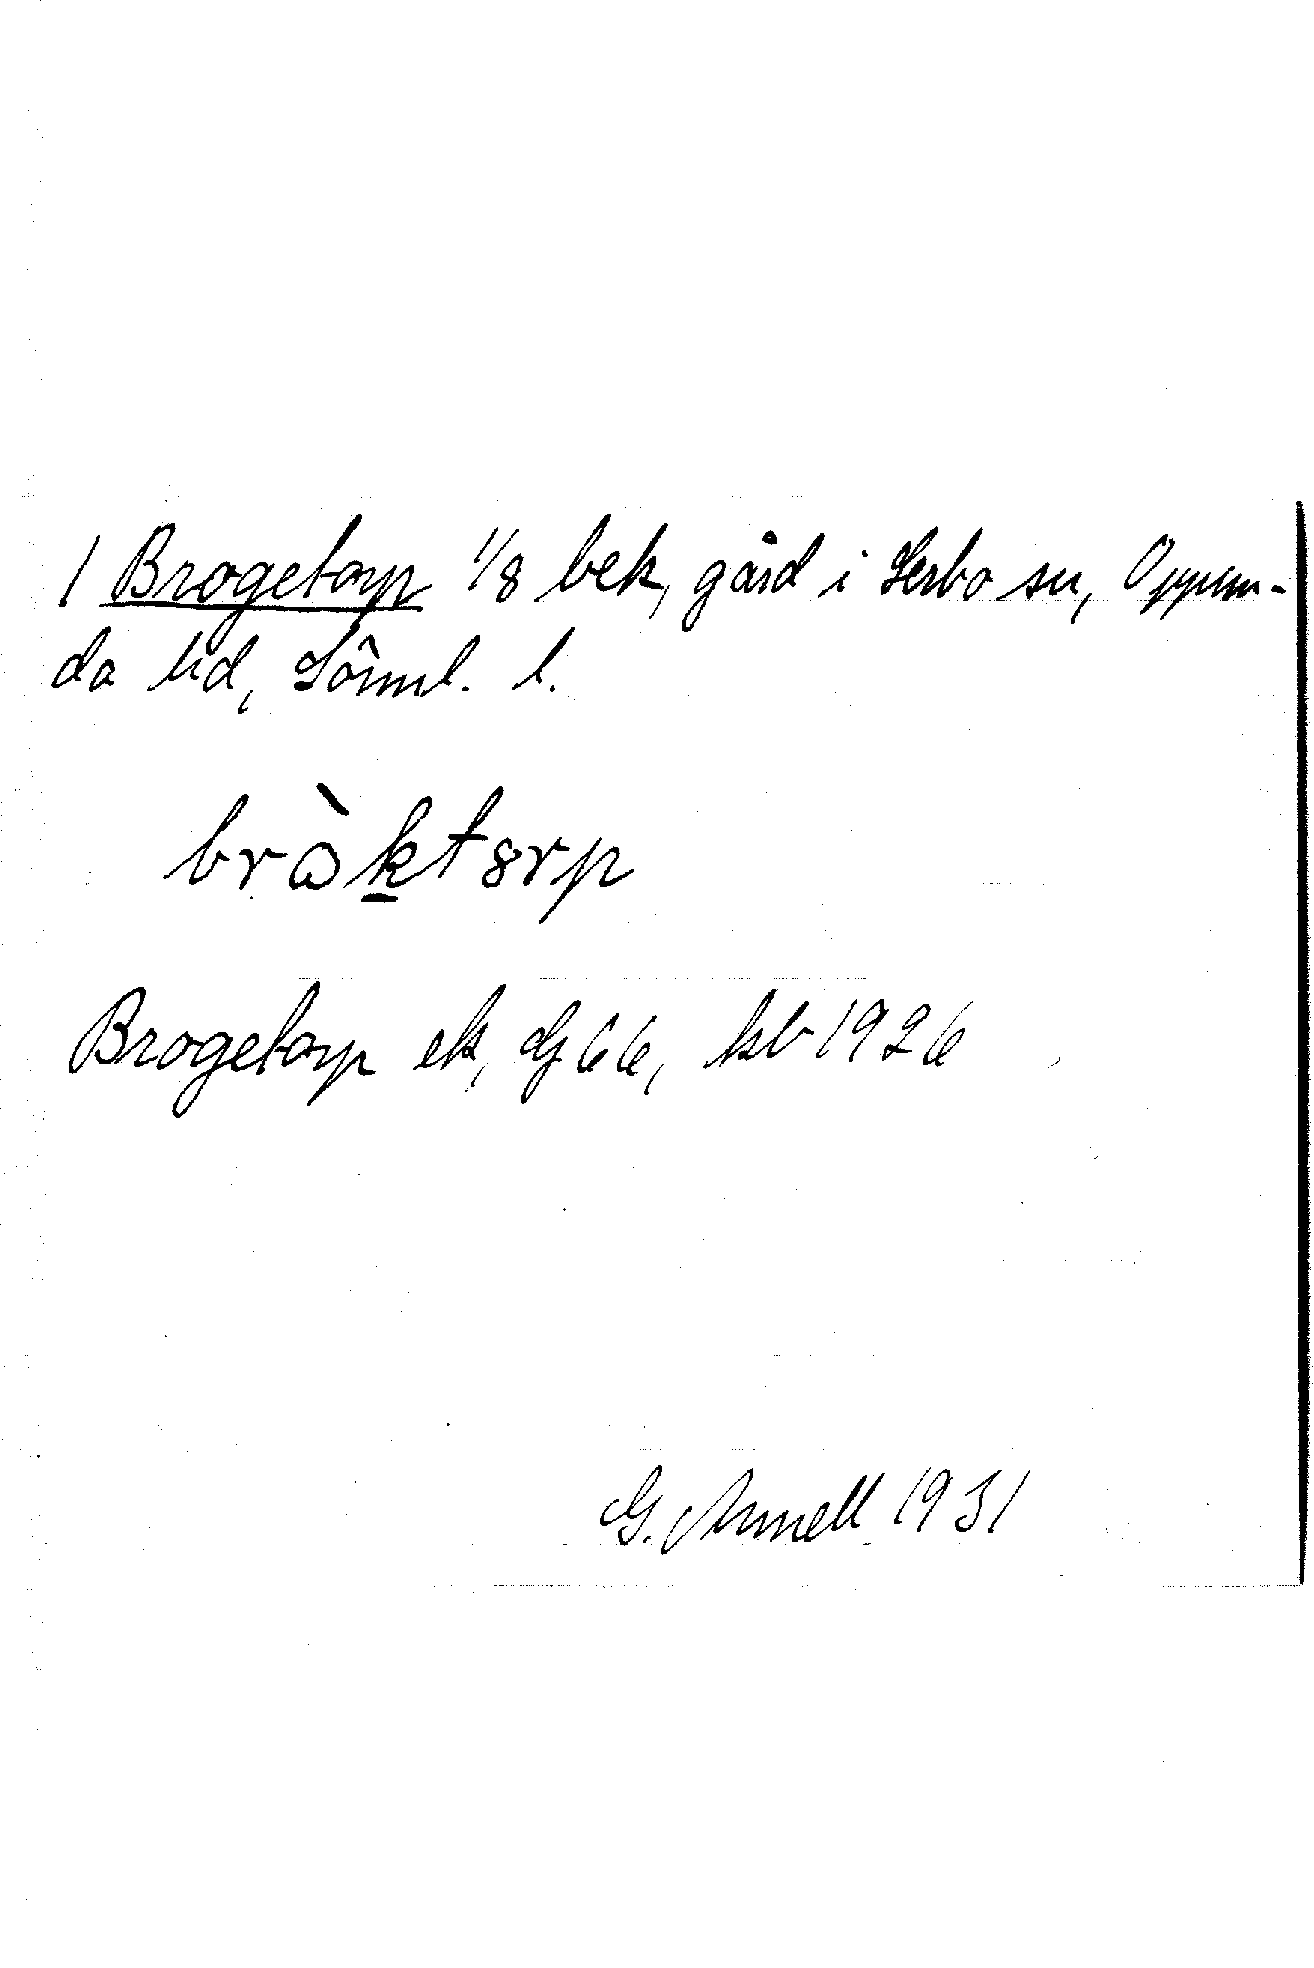 1 Brogetorp 1/8 bek, gård i Lerbo sn, Oppun-
da hd, Sörml. l.
bròktørp
Brogetorp ek, Gj 66, kb 1926
G. Arnell 1931